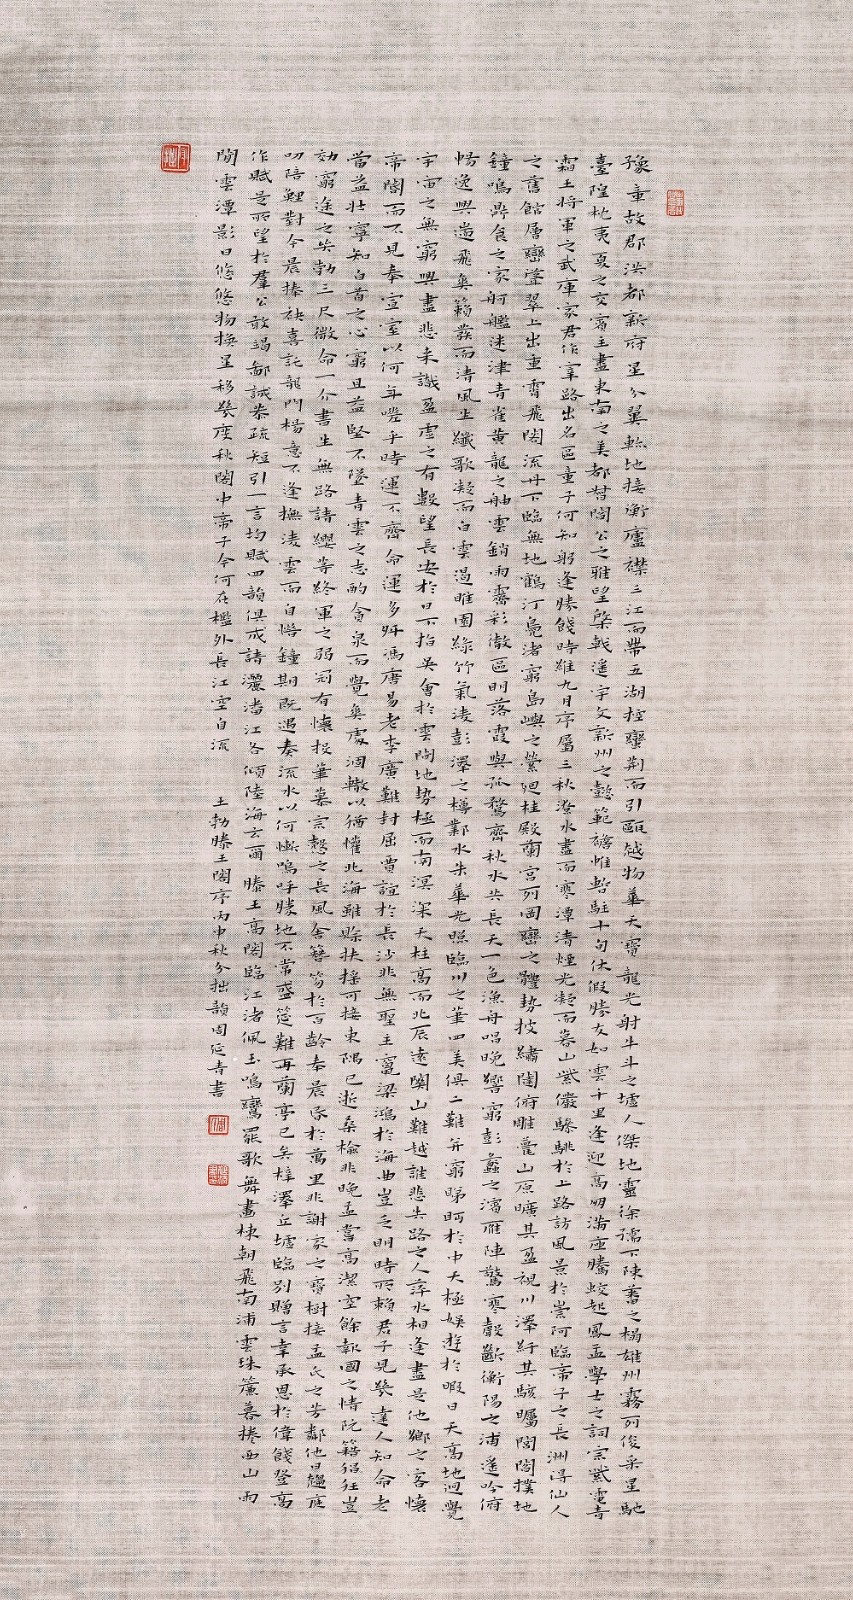 豫章故郡洪都新府星分翼軫地接衡廬襟三江而帶五湖控蠻荊而引甌越物華天寶龍光射牛斗之墟人傑地靈徐孺下陳蕃之榻雄州霧列俊采星馳
臺隍枕夷夏之交賓主盡東南之美都督閻公之雅望棨戟遙宇文新州之懿範襜帷暫駐十旬休假勝友如雲千里逢迎高朋滿座騰蛟起鳳孟學士之詞宗紫電青
霜王將軍之武庫家君作宰路出名區童子何知躬逢勝餞時維九月序屬三秋潦水盡而寒潭清煙光凝而暮山紫儼驂騑於上路訪風景於崇阿臨帝子之長洲得仙人
之舊館層巒聳翠上出重霄飛閣流丹下臨無地鶴汀鳧渚窮島嶼之縈迴桂殿蘭宮列岡巒之體勢披繡闥俯雕甍山原曠其盈視川澤紆其駭矚閭閻撲地
鐘鳴鼎食之家舸艦迷津青雀黃龍之舳雲銷雨霽彩徹區明落霞與孤鶩齊秋水共長天一色漁舟唱晚響窮彭蠡之濱雁陣驚寒聲斷衡陽之浦遙吟俯
暢逸興遄飛爽籟發而清風生纖歌凝而白雲遏睢園綠竹氣凌彭澤之樽鄴水朱華光照臨川之筆四美俱二難并窮睇眄於中天極娛遊於暇日天高地迥覺
宇宙之無窮興盡悲來識盈虛之有數望長安於日下指吳會於雲間地勢極而南溟深天柱高而北辰遠關山難越誰悲失路之人萍水相逢盡是他鄉之客懷
帝閽而不見奉宣室以何年嗟乎時運不齊命運多舛馮唐易老李廣難封屈賈誼於長沙非無聖主竄梁鴻於海曲豈乏明時所賴君子見幾達人知命老
當益壯寧知白首之心窮且益堅不墜青雲之志酌貪泉而覺爽處涸轍以猶懽北海雖賒扶搖可接東隅已逝桑榆非晚孟嘗高潔空餘報國之情阮籍猖狂豈
效窮途之哭勃三尺微命一介書生無路請纓等終軍之弱冠有懷投筆慕宗愨之長風舍簪笏於百齡奉晨昏於萬里非謝家之寶樹接孟氏之芳鄰他日趨庭
叨陪鯉對今晨捧袂喜託龍門楊意不逢撫凌雲而自惜鐘期既遇奏流水以何慚嗚呼勝地不常盛筵難再蘭亭已矣梓澤丘墟臨別贈言幸承恩於偉餞登高
作賦是所望於羣公敢竭鄙誠恭疏短引一言均賦四韻俱成請灑潘江各傾陸海云爾 滕王高閣臨江渚佩玉鳴鸞罷歌舞畫棟朝飛南浦雲珠簾暮捲西山雨
閒雲潭影日悠悠物換星移幾度秋閣中帝子今何在檻外長江空自流 王勃滕王閣序丙申秋分拙韻周延青書